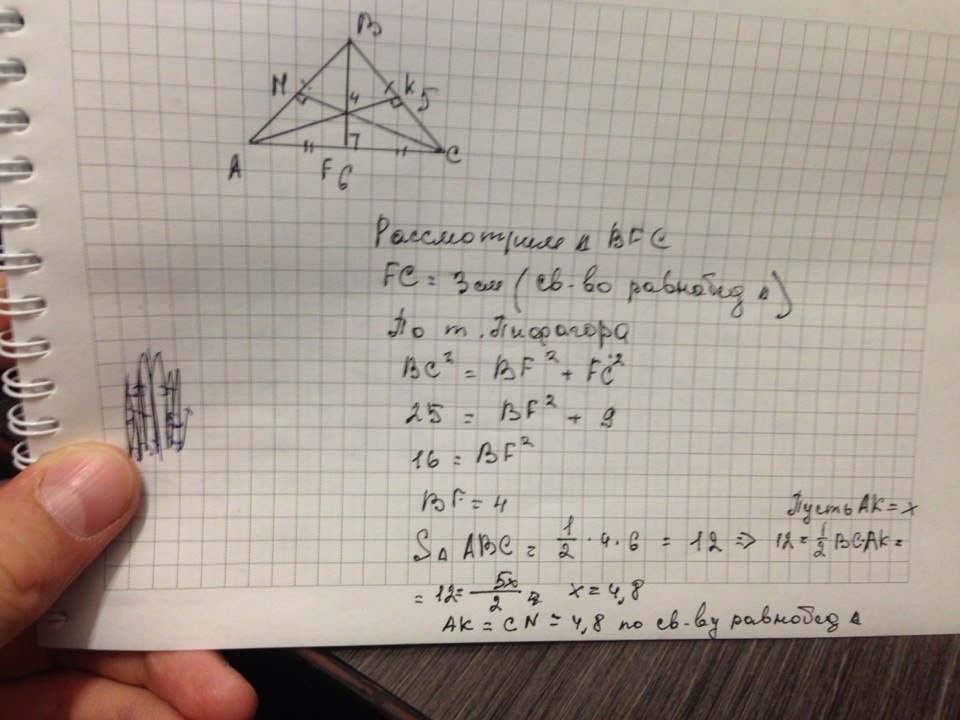 B
N K 5
4
A F 6 C
Рассмотрим Δ BFC
FC = 3 см (св-во равнобед Δ)
По т. Пифагора
BC² = BF² + FC²
25 = BF² + 9
16 = BF²
BF = 4
Пусть AK = x
S Δ ABC = 1/2 · 4 · 6 = 12 => 12 = 1/2 BC·AK =
= 12 = 5x/2 x = 4,8
AK = CN = 4,8 по св-ву равнобед Δ